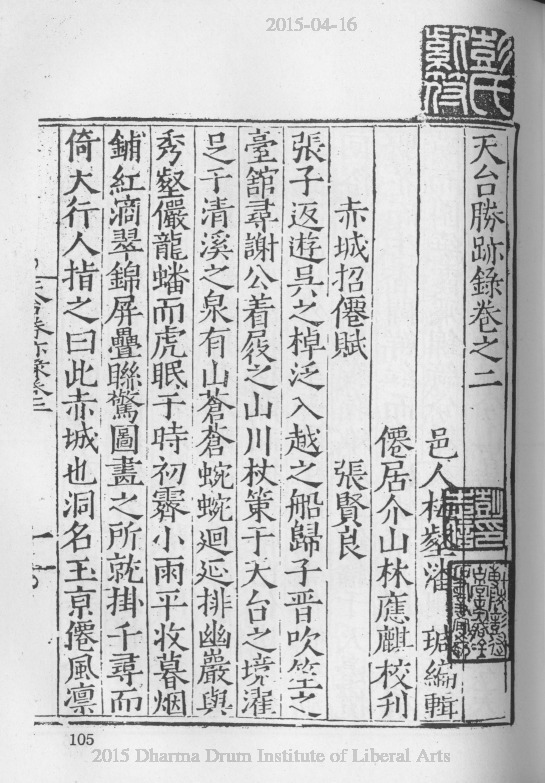 2015-04-16
彭氏
天台勝跡錄卷之二
邑人 壑潘 編輯
僊居介山林應麒校刊
赤城招僊賦 張賢良
張子返遊吳之棹泛入越之船歸子晉吹笙之
臺舘尋謝公着屐之山川杖策于天台之境濯
足于清溪之泉有山蒼蒼蜿蜿迴延排幽巖與
秀壑儼龍蟠而虎眠于時初霽小雨平收暮烟
鋪紅滴翠錦屏疊聯驚圖畫之所就掛千尋而
倚天行人指之曰此赤城也洞名玉京僊風凛
105
2015 Dharma Drum Institute of Liberal Arts